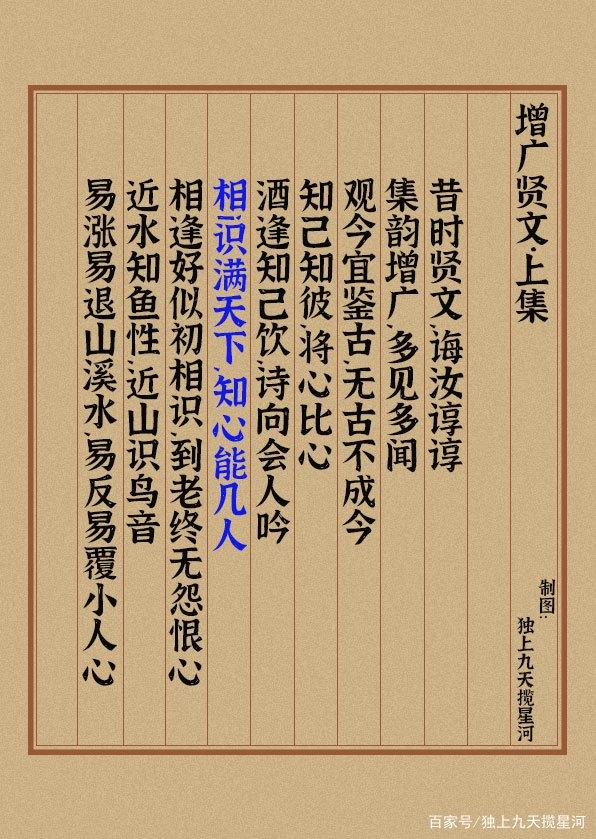 增广贤文·上集
制图：
独上九天揽星河
昔时贤文、诲汝谆谆
集韵增广、多见多闻
观今宜鉴古、无古不成今
知己知彼、将心比心
酒逢知己饮、诗向会人吟
相识满天下、知心能几人
相逢好似初相识、到老终无怨恨心
近水知鱼性、近山识鸟音
易涨易退山溪水、易反易覆小人心
百家号/独上九天揽星河